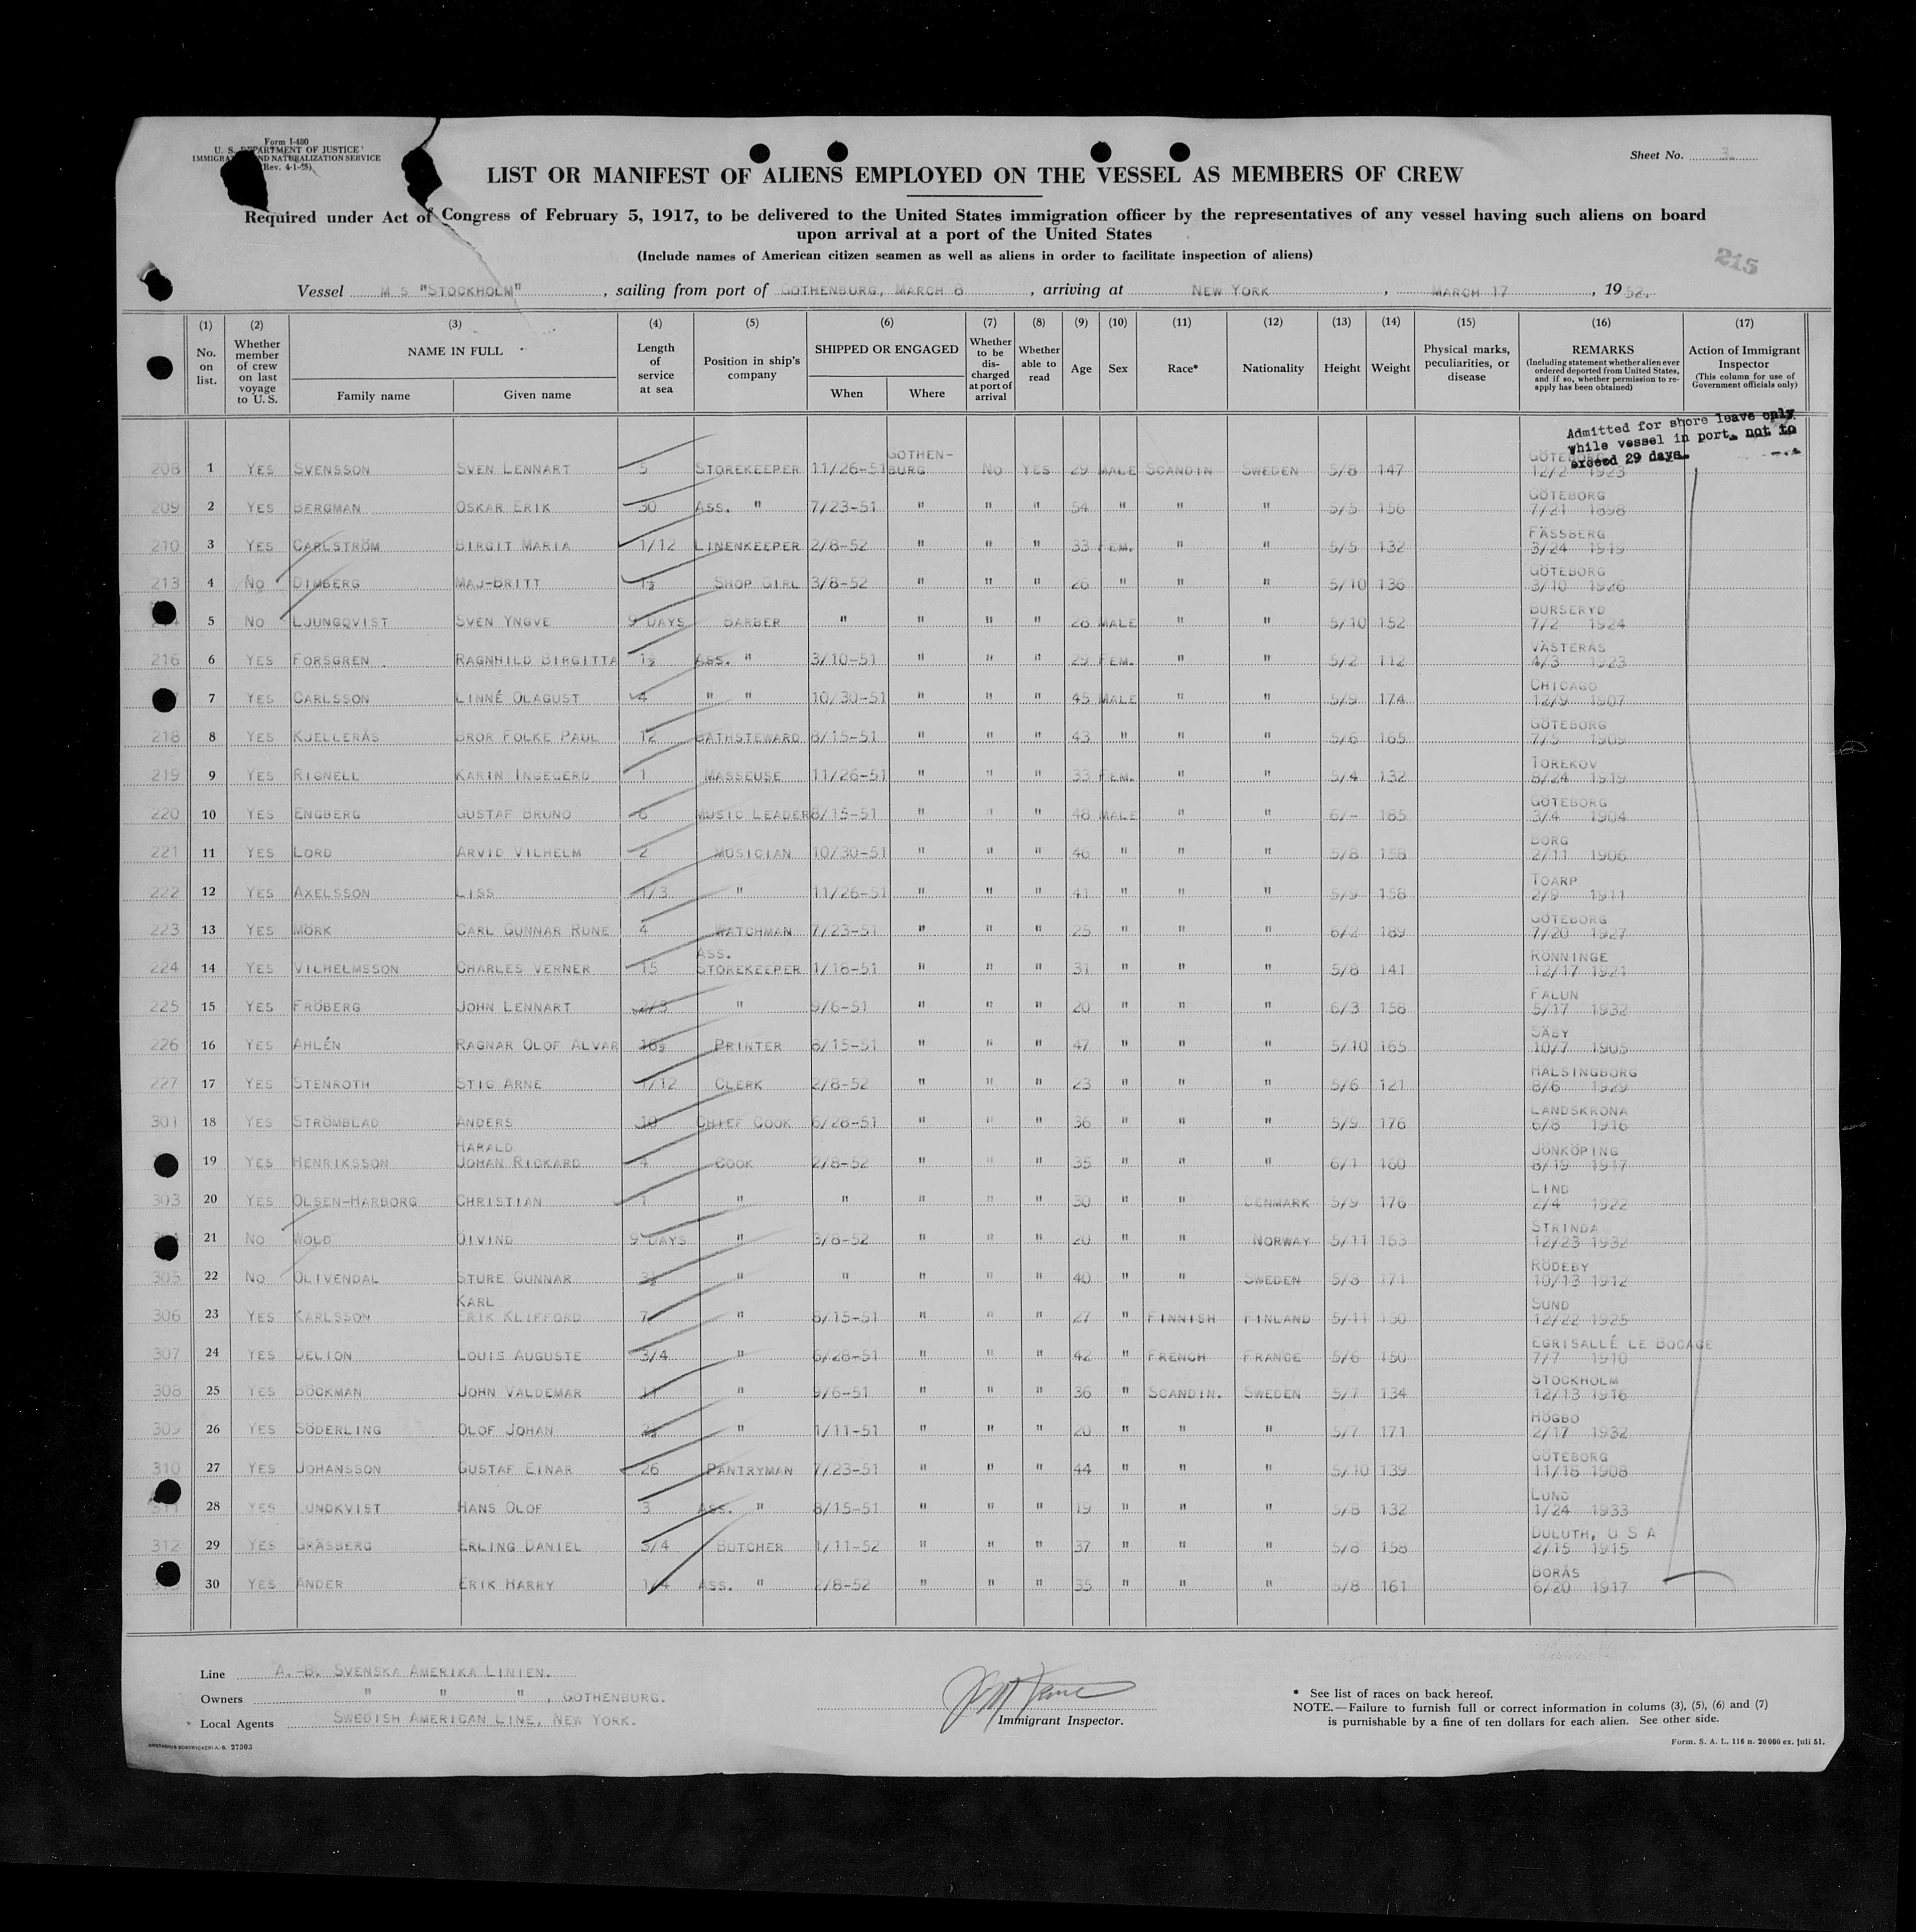 Form I-480
U. S. DEPARTMENT OF JUSTICE
IMMIGRATION AND NATURALIZATION SERVICE
(Rev. 4-1-45)
Sheet No. 3.
LIST OR MANIFEST OF ALIENS EMPLOYED ON THE VESSEL AS MEMBERS OF CREW
Required under Act of Congress of February 5, 1917, to be delivered to the United States immigration officer by the representatives of any vessel having such aliens on board
upon arrival at a port of the United States
(Include names of American citizen seamen as well as aliens in order to facilitate inspection of aliens)
215
Vessel M S "STOCKHOLM", sailing from port of GOTHENBURG, MARCH 8, arriving at NEW YORK, MARCH 17, 1952.
(1) (2) (3) (4) (5) (6) (7) (8) (9) (10) (11) (12) (13) (14) (15) (16) (17)
No. on list. Whether member of crew on last voyage to U. S. NAME IN FULL Family name Given name Length of service at sea Position in ship's company SHIPPED OR ENGAGED When Where Whether to be discharged at port of arrival Whether able to read Age Sex Race* Nationality Height Weight Physical marks, peculiarities, or disease REMARKS (Including statement whether alien ever ordered deported from United States, and if so, whether permission to re-apply has been obtained) Action of Immigrant Inspector (This column for use of Government officials only)
Admitted for shore leave only
while vessel in port, not to
exceed 29 days.
208 1 YES SVENSSON SVEN LENNART 5 STOREKEEPER 11/26-51 GOTHEN-BURG NO YES 29 MALE SCANDIN SWEDEN 5/8 147 GÖTEBORG 12/2 1923
209 2 YES BERGMAN OSKAR ERIK 30 ASS. " 7/23-51 " " " 54 " " " 5/5 156 GÖTEBORG 7/21 1898
210 3 YES CARLSTRÖM BIRGIT MARIA 1/12 LINENKEEPER 2/8-52 " " " 33 FEM. " " 5/5 132 FÄSSBERG 3/24 1919
213 4 NO DIMBERG MAJ-BRITT 1½ SHOP GIRL 3/8-52 " " " 26 " " " 5/10 136 GÖTEBORG 3/10 1926
5 NO LJUNGQVIST SVEN YNGVE 9 DAYS BARBER " " " " 28 MALE " " 5/10 152 BURSERYD 7/2 1924
216 6 YES FORSGREN RAGNHILD BIRGITTA 1½ ASS. " 3/10-51 " " " 29 FEM. " " 5/2 112 VÄSTERÅS 4/3 1923
7 YES CARLSSON LINNÉ OLAGUST 4 " " 10/30-51 " " " 45 MALE " " 5/9 174 CHICAGO 12/9 1907
218 8 YES KJELLERÅS BROR FOLKE PAUL 12 BATHSTEWARD 8/15-51 " " " 43 " " " 5/6 165 GÖTEBORG 7/5 1909
219 9 YES RIGNELL KARIN INGEGERD 1 MASSEUSE 11/26-51 " " " 33 FEM. " " 5/4 132 TOREKOV 8/24 1919
220 10 YES ENGBERG GUSTAF BRUNO 6 MUSIC LEADER 8/15-51 " " " 48 MALE " " 6/- 185 GÖTEBORG 3/4 1904
221 11 YES LORD ARVID VILHELM 2 MUSICIAN 10/30-51 " " " 46 " " " 5/8 158 BORG 2/11 1906
222 12 YES AXELSSON LISS 1/3 " 11/26-51 " " " 41 " " " 5/9 158 TOARP 2/9 1911
223 13 YES MÖRK CARL GUNNAR RUNE 4 WATCHMAN 7/23-51 " " " 25 " " " 6/2 189 GÖTEBORG 7/20 1927
224 14 YES VILHELMSSON CHARLES VERNER 15 ASS. STOREKEEPER 1/18-51 " " " 31 " " " 5/8 141 RÖNNINGE 12/17 1921
225 15 YES FRÖBERG JOHN LENNART 2/3 " 9/6-51 " " " 20 " " " 6/3 158 FALUN 5/17 1932
226 16 YES AHLÉN RAGNAR OLOF ALVAR 16½ PRINTER 8/15-51 " " " 47 " " " 5/10 165 SÄBY 10/7 1905
227 17 YES STENROTH STIG ARNE 1/12 CLERK 2/8-52 " " " 23 " " " 5/6 121 HÄLSINGBORG 8/6 1929
301 18 YES STRÖMBLAD ANDERS 10 CHIEF COOK 6/28-51 " " " 36 " " " 5/9 176 LANDSKRONA 6/8 1916
19 YES HENRIKSSON HARALD JOHAN RICKARD 4 COOK 2/8-52 " " " 35 " " " 6/1 160 JÖNKÖPING 8/19 1917
303 20 YES OLSEN-HARBORG CHRISTIAN 1 " " " " " 30 " " DENMARK 5/9 176 LIND 2/4 1922
21 NO WOLD ÖIVIND 9 DAYS " 3/8-52 " " " 20 " " NORWAY 5/11 163 STRINDA 12/23 1932
305 22 NO OLIVENDAL STURE GUNNAR " " " " " 40 " " SWEDEN 5/8 171 RÖDEBY 10/13 1912
306 23 YES KARLSSON KARL ERIK KLIFFORD 7 " 8/15-51 " " " 27 " FINNISH FINLAND 5/11 150 SUND 12/22 1925
307 24 YES DELION LOUIS AUGUSTE 3/4 " 6/28-51 " " " 42 " FRENCH FRANCE 5/6 150 EGRISALLÉ LE BOCAGE 7/7 1910
308 25 YES BÖCKMAN JOHN VALDEMAR 11 " 9/6-51 " " " 36 " SCANDIN. SWEDEN 5/7 134 STOCKHOLM 12/13 1916
309 26 YES SÖDERLING OLOF JOHAN " 1/11-51 " " " 20 " " " 5/7 171 HÖGBO 2/17 1932
310 27 YES JOHANSSON GUSTAF EINAR 26 PANTRYMAN 7/23-51 " " " 44 " " " 5/10 139 GÖTEBORG 11/18 1908
311 28 YES LUNDKVIST HANS OLOF 3 ASS. " 8/15-51 " " " 19 " " " 5/8 132 LUND 1/24 1933
312 29 YES GRÄSBERG ERLING DANIEL 3/4 BUTCHER 1/11-52 " " " 37 " " " 5/8 158 DULUTH, U S A 2/15 1915
30 YES ANDER ERIK HARRY 1/4 ASS. " 2/8-52 " " " 35 " " " 5/8 161 BORÅS 6/20 1917
Line A.-B. SVENSKA AMERIKA LINIEN.
Owners " " ", GOTHENBURG.
Local Agents SWEDISH AMERICAN LINE, NEW YORK.
Immigrant Inspector.
* See list of races on back hereof.
NOTE.—Failure to furnish full or correct information in colums (3), (5), (6) and (7)
is punishable by a fine of ten dollars for each alien. See other side.
27303
Form. S. A. L. 116 n. 20000 ex. juli 51.